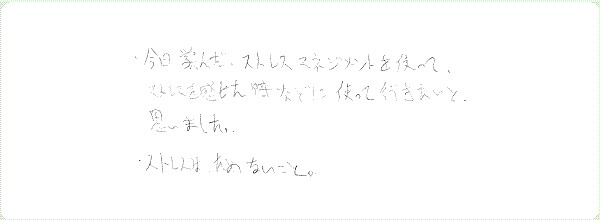 ・今日学んだ、ストレスマネジメントを使って、
ストレスを感じた時などに使って行きたいと、
思いました。
・ストレスはためないこと。